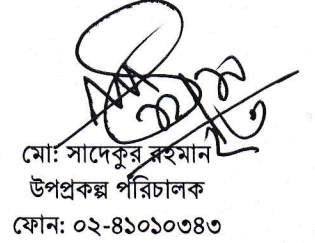 মো: সাদেকুর রহমান
উপপ্রকল্প পরিচালক
ফোন: ০২-৪১০১০৩৪৩